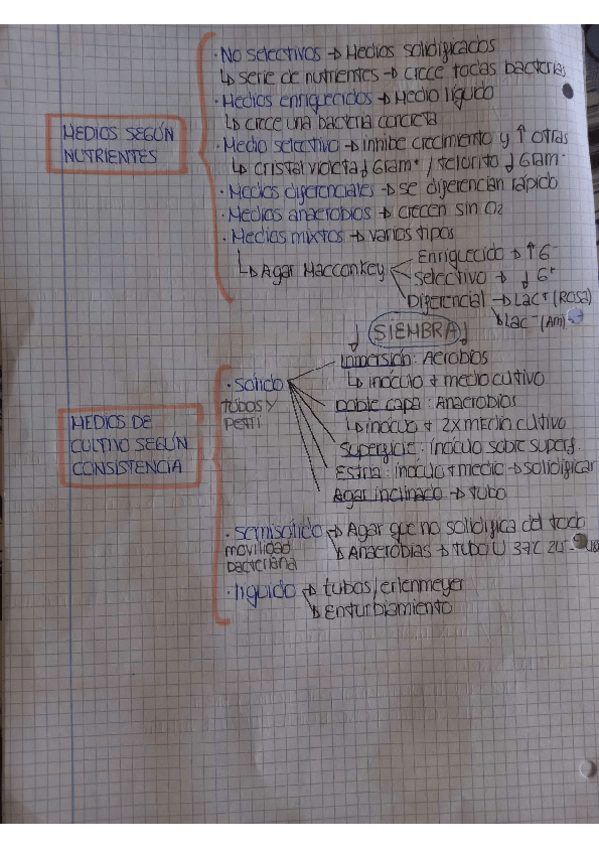 MEDIOS SEGÚN
NUTRIENTES
· No selectivos → Medios solidificados
↳ serie de nutrientes → crece todas bacterias
· Medios enriquecidos → Medio líquido
↳ crece una bacteria concreta
· Medio selectivo → inhibe crecimiento y ↑ otras
↳ cristal violeta ↓ Gram⁺ / telurito ↓ Gram⁻
· Medios diferenciales → se diferencian rápido
· Medios anaerobios → crecen sin O2
· Medios mixtos → varios tipos
↳ Agar Macconkey
Enriquecido → ↑ G⁻
Selectivo → ↓ G⁺
Diferencial → Lac⁺ (Rosa)
↳ Lac⁻ (Am)
↓ SIEMBRA ↓
MEDIOS DE
CULTIVO SEGÚN
CONSISTENCIA
· sólido
tubos y
petri
Inmersión: Aerobios
↳ inóculo + medio cultivo
Doble capa: Anaerobios
↳ inóculo + 2x medio cultivo
Superficie: inóculo sobre superf.
Estría: inóculo + medio → solidificar
Agar inclinado → tubo
· Semisólido → Agar que no solidifica del todo
movilidad
bacteriana
↳ Anaerobias → tubo U 37C
· líquido → tubos/erlenmeyer
↳ Enturbiamiento